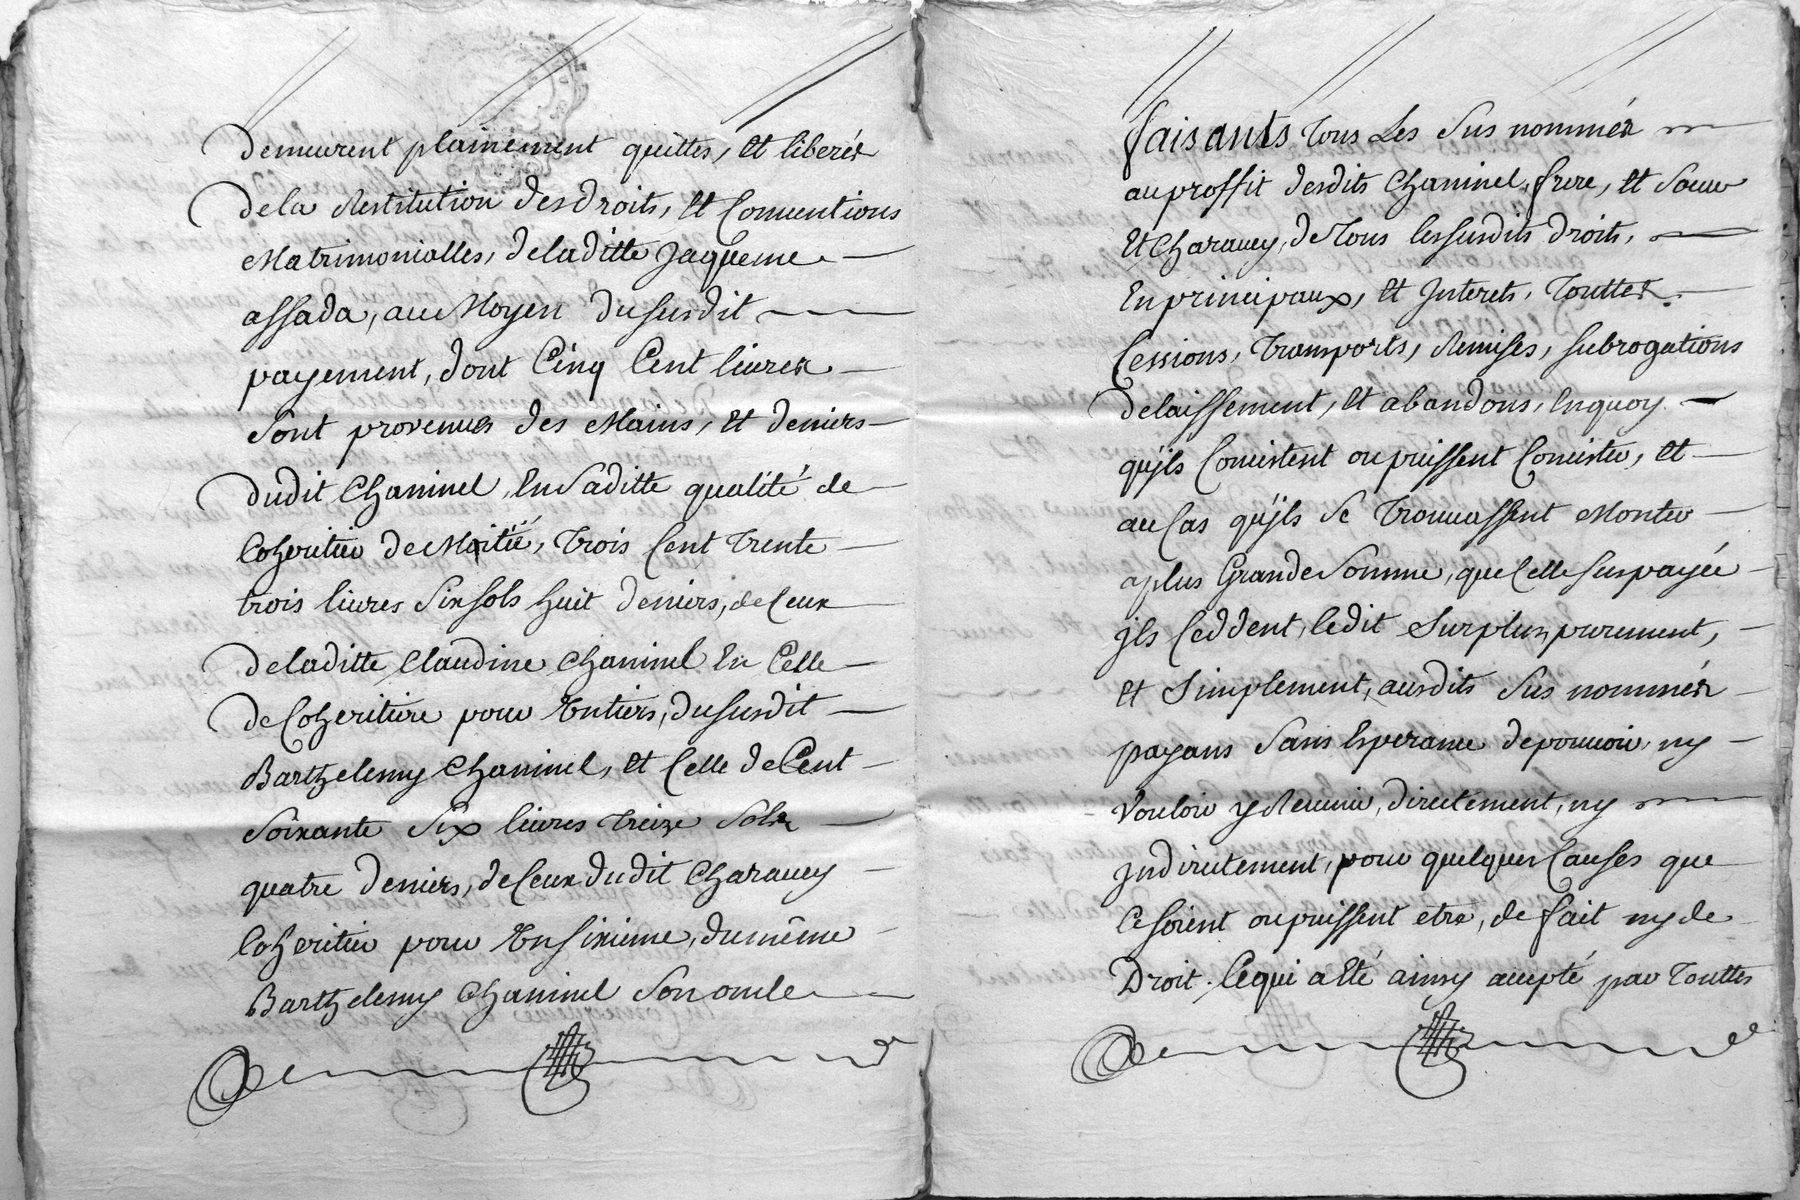 Demeurent plainement quittes, et liberés
de la Restitution des droits, et Conventions
Matrimonialles, de laditte Jaqueme
assada, au Moyen du susdit
payement, dont Cinq Cent livres
sont provenues des Mains, et deniers
dudit Chaninel, en saditte qualité de
Coheritier de Moitié, trois Cent trente
trois livres six sols huit deniers, de Ceux
de laditte Claudine Chaninel en Celle
de Coheritiere pour un tiers, du susdit
Barthelemy Chaninel, et Celle de Cent
soixante six livres treize sols
quatre deniers, de Ceux dudit Charavey
Coheritier pour un sixieme, du même
Barthelemy Chaninel son oncle
faisants tous Les sus nommés
au proffit desdits Chaninel, frere, et soeur
et Charavey, de tous les susdits droits,
en principaux, et Interets, touttes
Cessions, transports, Remises, subrogations
delaissement, et abandons, en quoy
qu'ils Consistent ou puissent Consister, et
au Cas qu'ils se trouvassent Monter
a plus Grande somme, que Celle sus payée
ils Ceddent, ledit surplus, purement,
et simplement, ausdits sus nommés
payans sans Esperance de pouvoir, ny
vouloir y Revenir, directement, ny
Indirectement, pour quelques Causes que
Ce soient ou puissent etre, de fait ny de
Droit. Ce qui a eté ainsy accepté par touttes